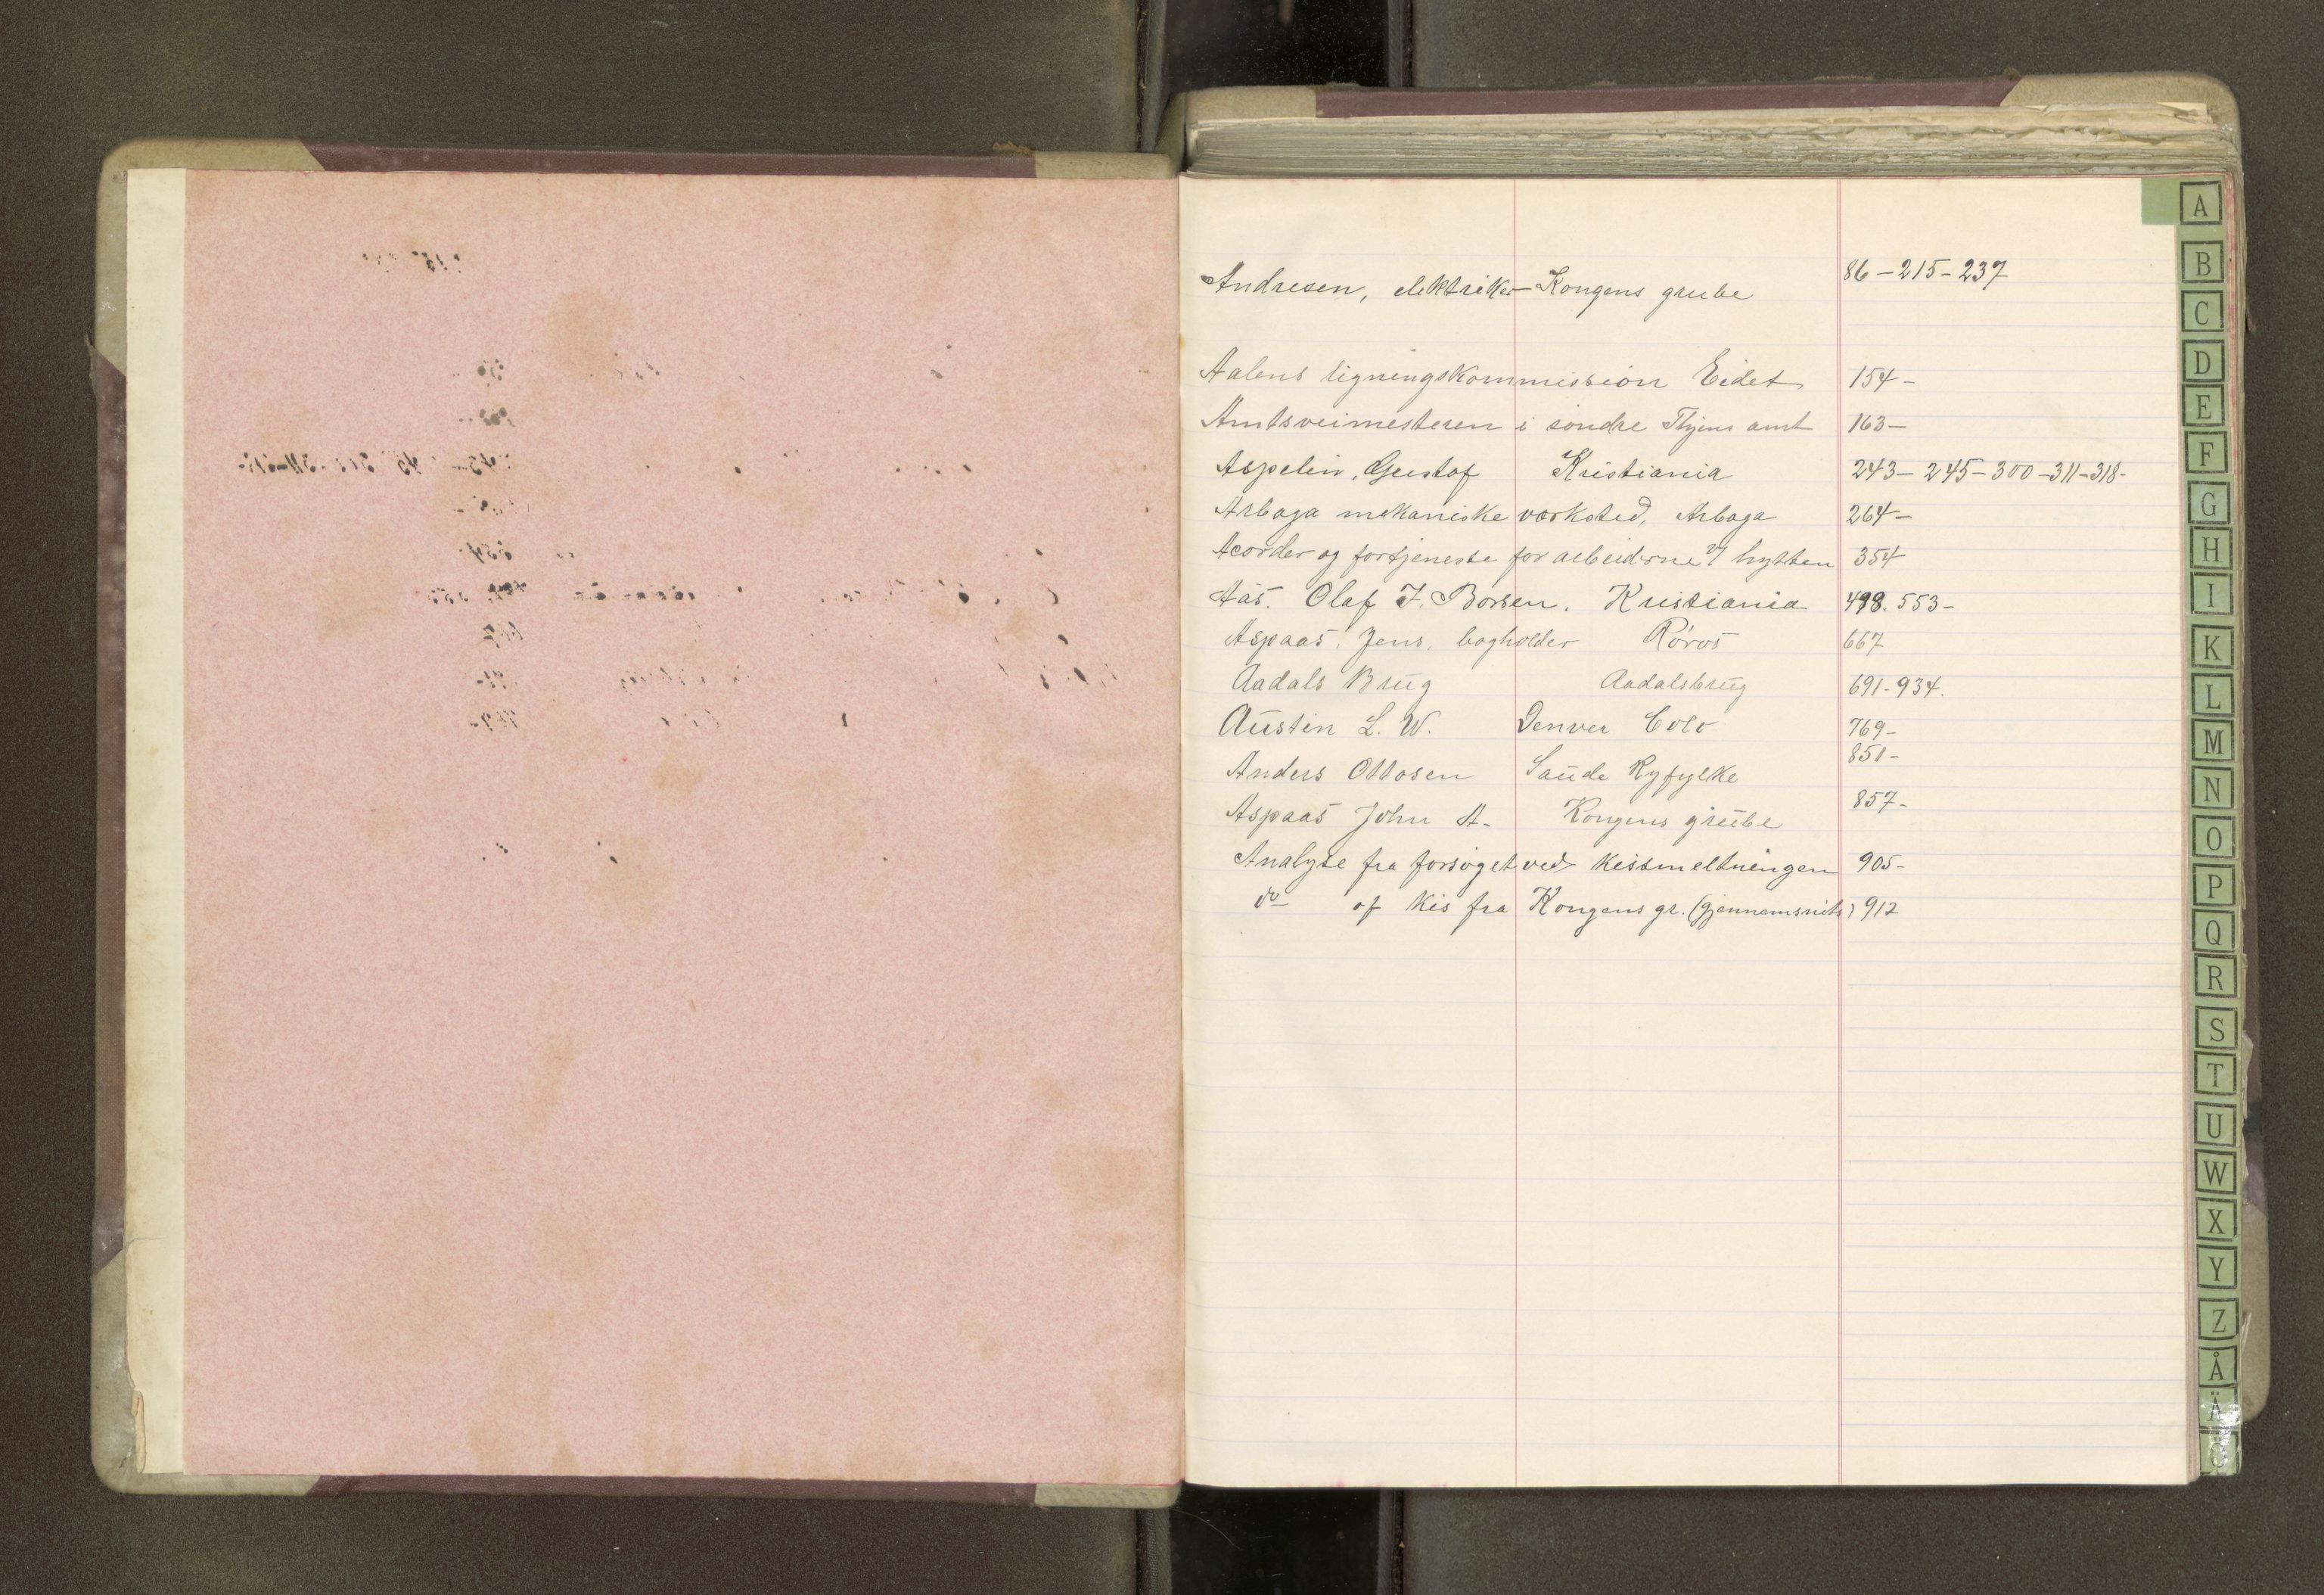 Andresen, elektriker Kongens grube 86-215-237
Aalens ligningskommission Eidet 154-
Amtsveimesteren i söndre Thjems amt 163-
Aspelin, Gustaf Kristiania 243-245-300-311-318-
Arboga mekaniske værksted, Arboga 264-
Acorder og fortjeneste for arbeiderne v/ hytten 354
Aas. Olaf F. Borsen. Kristiania 498. 553-
Aspaas, Jens, bogholder Röros 667
Aadals Brug Aadalsbrug 691-934.
Austin L. W. Denver Colo 769-
Anders Ottosen Saude Ryfylke 851-
Aspaas John A- Kongens grube 857-
Analyse fra forsöget ved kissmeltningen 905-
do af Kis fra Kongens gr. (gjennemsnits) 912
A
B
C
D
E
F
G
H
I
K
L
M
N
O
P
Q
R
S
T
U
W
X
Y
Z
Å
Ä
Ö